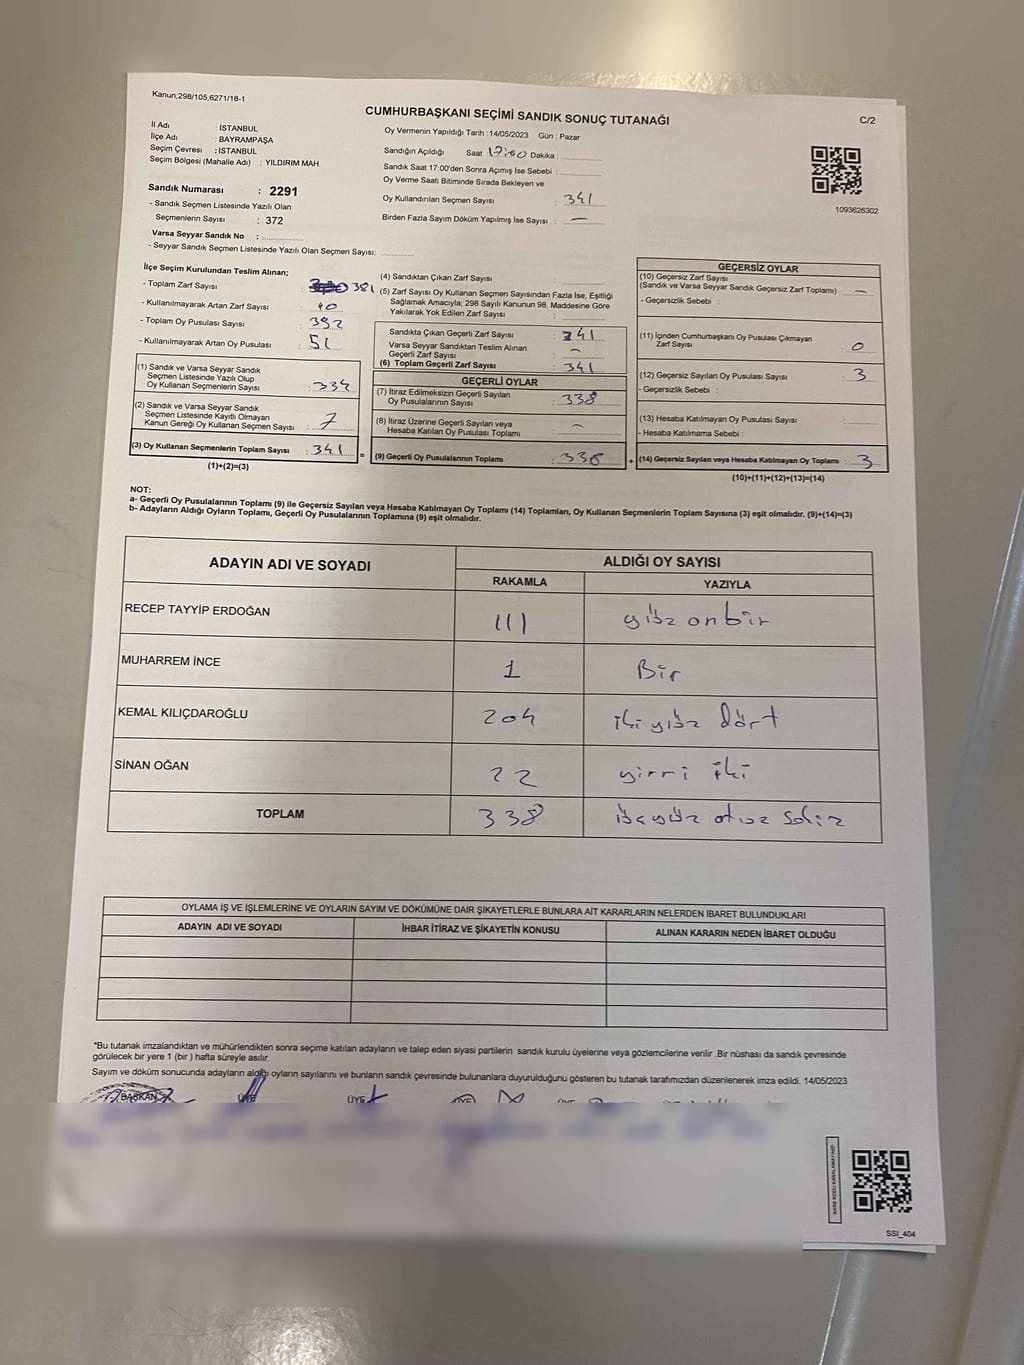 Kanun;298/105,6271/18-1
CUMHURBAŞKANI SEÇİMİ SANDIK SONUÇ TUTANAĞI
C/2
İl Adı : İSTANBUL
İlçe Adı : BAYRAMPAŞA
Seçim Çevresi : İSTANBUL
Seçim Bölgesi (Mahalle Adı) : YILDIRIM MAH
Sandık Numarası : 2291
- Sandık Seçmen Listesinde Yazılı Olan
Seçmenlerin Sayısı : 372
Varsa Seyyar Sandık No :
- Seyyar Sandık Seçmen Listesinde Yazılı Olan Seçmen Sayısı:
Oy Vermenin Yapıldığı Tarih :14/05/2023 Gün : Pazar
Sandığın Açıldığı Saat 17:00 Dakika :
Sandık Saat 17:00'den Sonra Açımış İse Sebebi :
Oy Verme Saati Bitiminde Sırada Bekleyen ve
Oy Kullandırılan Seçmen Sayısı : 341
Birden Fazla Sayım Döküm Yapılmış İse Sayısı : —
1093626302
İlçe Seçim Kurulundan Teslim Alınan;
- Toplam Zarf Sayısı : 381
- Kullanılmayarak Artan Zarf Sayısı : 40
- Toplam Oy Pusulası Sayısı : 392
- Kullanılmayarak Artan Oy Pusulası : 51
(1) Sandık ve Varsa Seyyar Sandık
Seçmen Listesinde Yazılı Olup
Oy Kullanan Seçmenlerin Sayısı : 334
(2) Sandık ve Varsa Seyyar Sandık
Seçmen Listesinde Kayıtlı Olmayan
Kanun Gereği Oy Kullanan Seçmen Sayısı : 7
(3) Oy Kullanan Seçmenlerin Toplam Sayısı : 341
(1)+(2)=(3)
(4) Sandıktan Çıkan Zarf Sayısı :
(5) Zarf Sayısı Oy Kullanan Seçmen Sayısından Fazla İse, Eşitliği
Sağlamak Amacıyla; 298 Sayılı Kanunun 98. Maddesine Göre
Yakılarak Yok Edilen Zarf Sayısı :
Sandıkta Çıkan Geçerli Zarf Sayısı : 341
Varsa Seyyar Sandıktan Teslim Alınan
Geçerli Zarf Sayısı : —
(6) Toplam Geçerli Zarf Sayısı : 341
GEÇERLİ OYLAR
(7) İtiraz Edilmeksizin Geçerli Sayılan
Oy Pusulalarının Sayısı : 338
(8) İtiraz Üzerine Geçerli Sayılan veya
Hesaba Katılan Oy Pusulası Toplamı : —
= (9) Geçerli Oy Pusulalarının Toplamı : 338
GEÇERSİZ OYLAR
(10) Geçersiz Zarf Sayısı
(Sandık ve Varsa Seyyar Sandık Geçersiz Zarf Toplamı) : —
- Geçersizlik Sebebi :
(11) İçinden Cumhurbaşkanı Oy Pusulası Çıkmayan
Zarf Sayısı : 0
(12) Geçersiz Sayılan Oy Pusulası Sayısı : 3
- Geçersizlik Sebebi :
(13) Hesaba Katılmayan Oy Pusulası Sayısı :
- Hesaba Katılmama Sebebi :
+ (14) Geçersiz Sayılan veya Hesaba Katılmayan Oy Toplamı : 3
(10)+(11)+(12)+(13)=(14)
NOT:
a- Geçerli Oy Pusulalarının Toplamı (9) ile Geçersiz Sayılan veya Hesaba Katılmayan Oy Toplamı (14) Toplamları, Oy Kullanan Seçmenlerin Toplam Sayısına (3) eşit olmalıdır. (9)+(14)=(3)
b- Adayların Aldığı Oyların Toplamı, Geçerli Oy Pusulalarının Toplamına (9) eşit olmalıdır.
ADAYIN ADI VE SOYADI ALDIĞI OY SAYISI
RAKAMLA YAZIYLA
RECEP TAYYİP ERDOĞAN 111 yüz onbir
MUHARREM İNCE 1 Bir
KEMAL KILIÇDAROĞLU 204 iki yüz dört
SİNAN OĞAN 22 yirmi iki
TOPLAM 338 üçyüz otuz sekiz
OYLAMA İŞ VE İŞLEMLERİNE VE OYLARIN SAYIM VE DÖKÜMÜNE DAİR ŞİKAYETLERLE BUNLARA AİT KARARLARIN NELERDEN İBARET BULUNDUKLARI
ADAYIN ADI VE SOYADI İHBAR İTİRAZ VE ŞİKAYETİN KONUSU ALINAN KARARIN NEDEN İBARET OLDUĞU
*Bu tutanak imzalandıktan ve mühürlendikten sonra seçime katılan adayların ve talep eden siyasi partilerin sandık kurulu üyelerine veya gözlemcilerine verilir .Bir nüshası da sandık çevresinde
görülecek bir yere 1 (bir ) hafta süreyle asılır.
Sayım ve döküm sonucunda adayların aldığı oyların sayılarını ve bunların sandık çevresinde bulunanlara duyurulduğunu gösteren bu tutanak tarafımızdan düzenlenerek imza edildi. 14/05/2023
BAŞKAN ÜYE ÜYE ÜYE
SSI_404